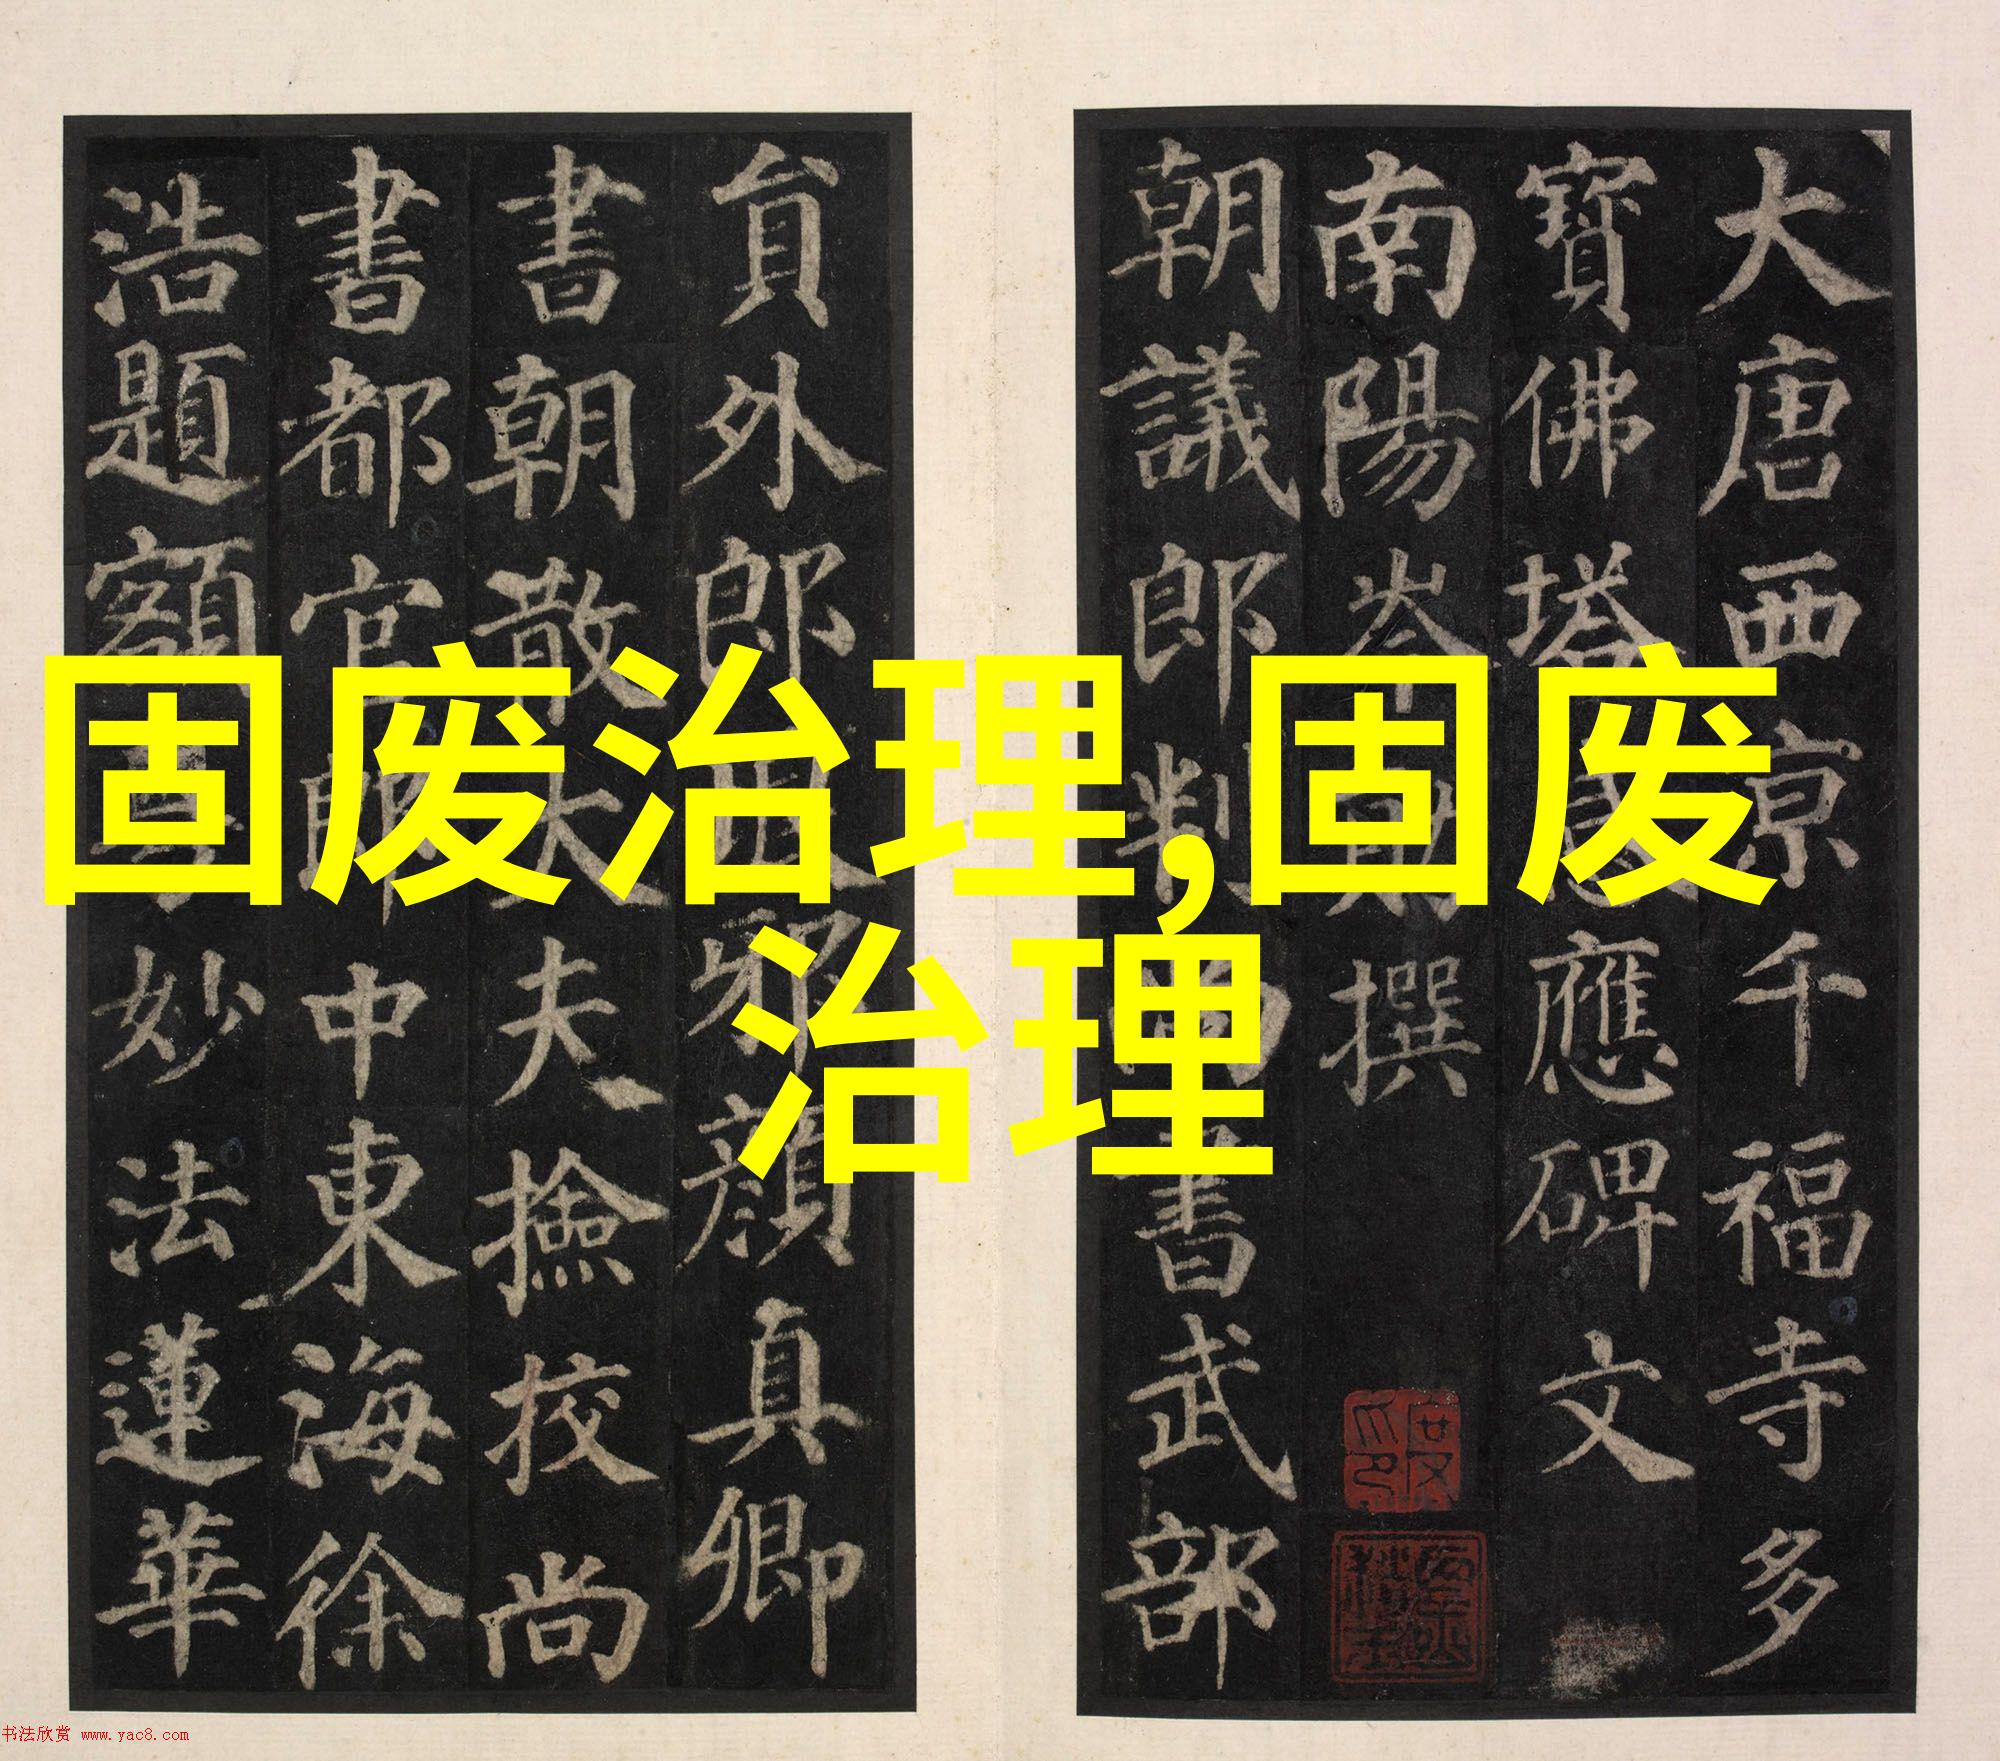 大唐西京千福寺多
寶佛塔感應碑文
南陽岑勛撰
朝議郎判尚書武部
貟外郎琅邪顏真卿
書朝散大夫撿校尚
書都官郎中東海徐
浩題額粵妙法蓮華
固废治理,固废
治理
书法欣赏 www.yac8.com